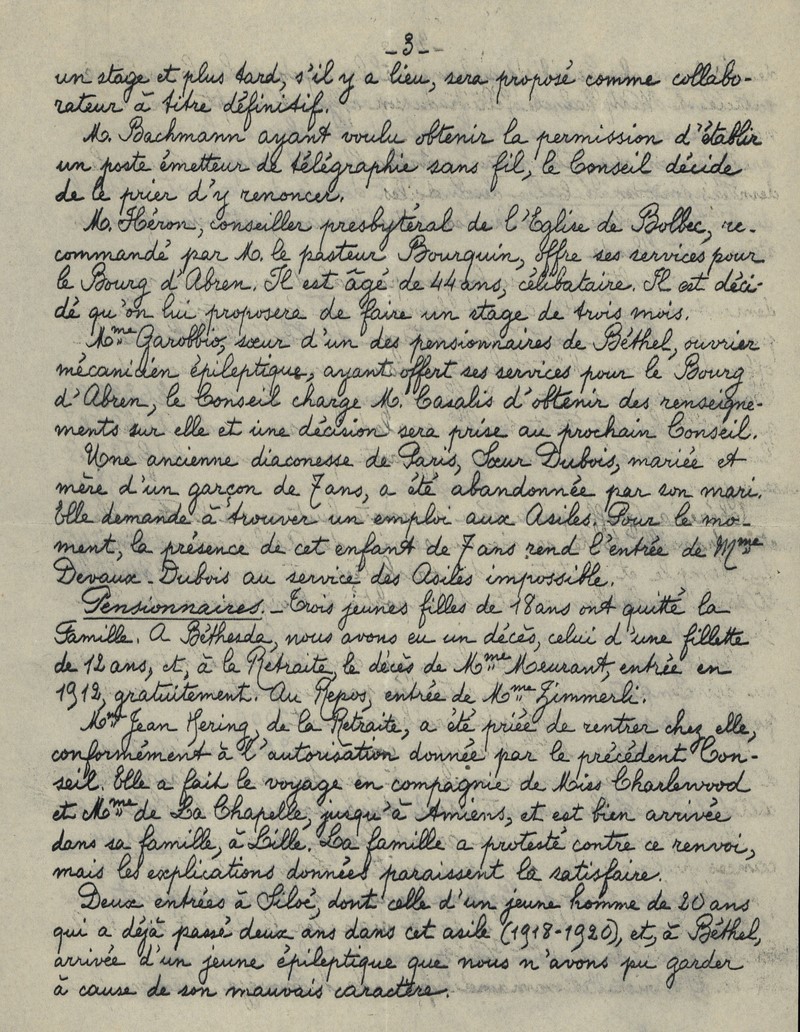 -3-
un stage et plus tard, s'il y a lieu, sera proposé comme collabo-
rateur à titre définitif.
M. Bachmann ayant voulu obtenir la permission d'établir
un poste émetteur de télégraphie sans fil, le Conseil décide
de le prier d'y renoncer.
M. Héron, conseiller presbytéral de l'Eglise de Bolbec, re-
commandé par M. le pasteur Bourguin, offre ses services pour
le Bourg d'Abren. Il est âgé de 44 ans, célibataire. Il est déci-
dé qu'on lui proposera de faire un stage de trois mois.
Mme Garobbio, sœur d'un des pensionnaires de Béthel, ouvrier
mécanicien épileptique, ayant offert ses services pour le Bourg
d'Abren, le Conseil charge M. Casalis d'obtenir des renseigne-
ments sur elle et une décision sera prise au prochain Conseil.
Une ancienne diaconesse de Paris, Sœur Dubois, mariée et
mère d'un garçon de 7 ans, a été abandonnée par son mari.
Elle demande à trouver un emploi aux Asiles. Pour le mo-
ment, la présence de cet enfant de 7 ans rend l'entrée de Mme
Devaux-Dubois au service des Asiles impossible.
Pensionnaires.- Trois jeunes filles de 18 ans ont quitté la
Famille. A Béthesda, nous avons eu un décès, celui d'une fillette
de 12 ans, et, à la Retraite, le décès de Mme Meurant, entrée en
1912, gratuitement. Au Repos, entrée de Mme Zimmerli.
Jean Hering, de la Retraite, a été priée de rentrer chez elle,
conformément à l'autorisation donnée par le précédent Con-
seil. Elle a fait le voyage en compagnie de Mies Charlewood
et Mme de La Chapelle, jusqu'à Amiens, et est bien arrivée
dans sa famille, à Lille. La famille a protesté contre ce renvoi,
mais les explications données paraissent la satisfaire.
Deux entrées à Siloé, dont celle d'un jeune homme de 20 ans
qui a déjà passé deux ans dans cet asile (1918-1920), et, à Béthel,
arrivée d'un jeune épileptique que nous n'avons pu garder
à cause de son mauvais caractère.